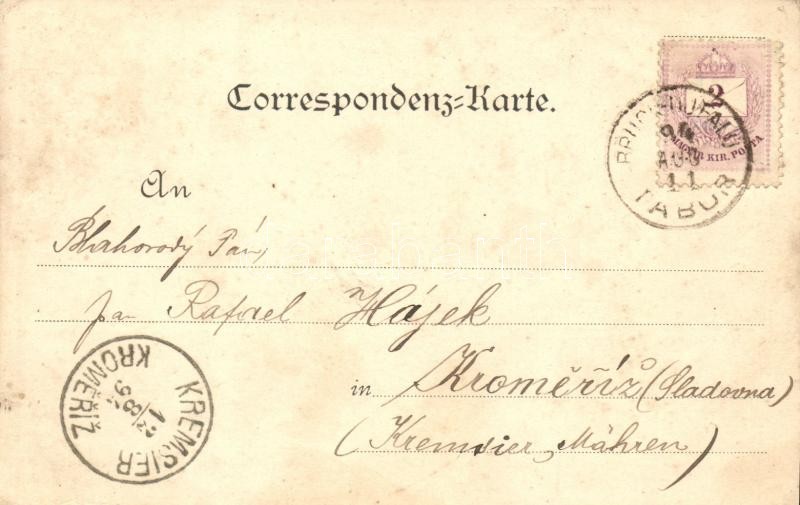 Correspondenz-Karte.
2
MAGYAR KIR. POSTA
BRUCK-UJFALU
94
AUG
11
TÁBOR
An
Blahorodý Pán,
pan Rafael Hájek
in Kroměříž (Sladovna)
(Kremsier, Mähren)
KREMSIER
12/8
94
KROMĚŘÍŽ